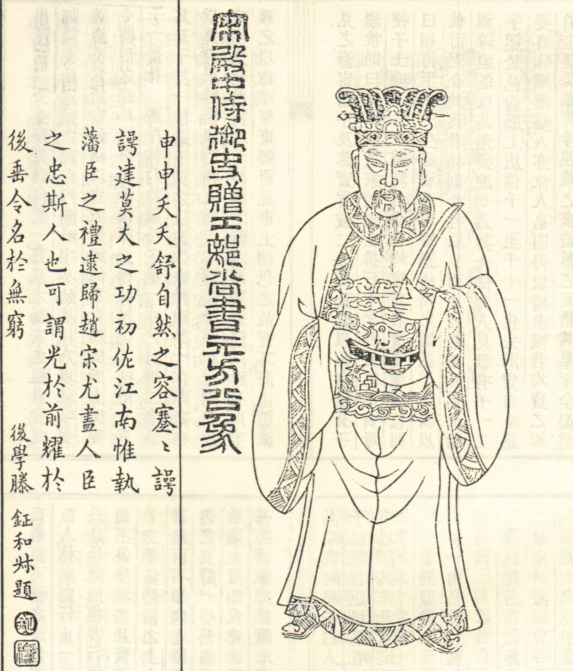 宋殿中侍御史贈工部尚書元方公象
申申夭夭舒自然之容蹇〻諤
諤達莫大之功初佐江南惟執
藩臣之禮逮歸趙宋尤盡人臣
之忠斯人也可謂光於前耀於
後垂令名於無窮
後學滕鉦和叔題